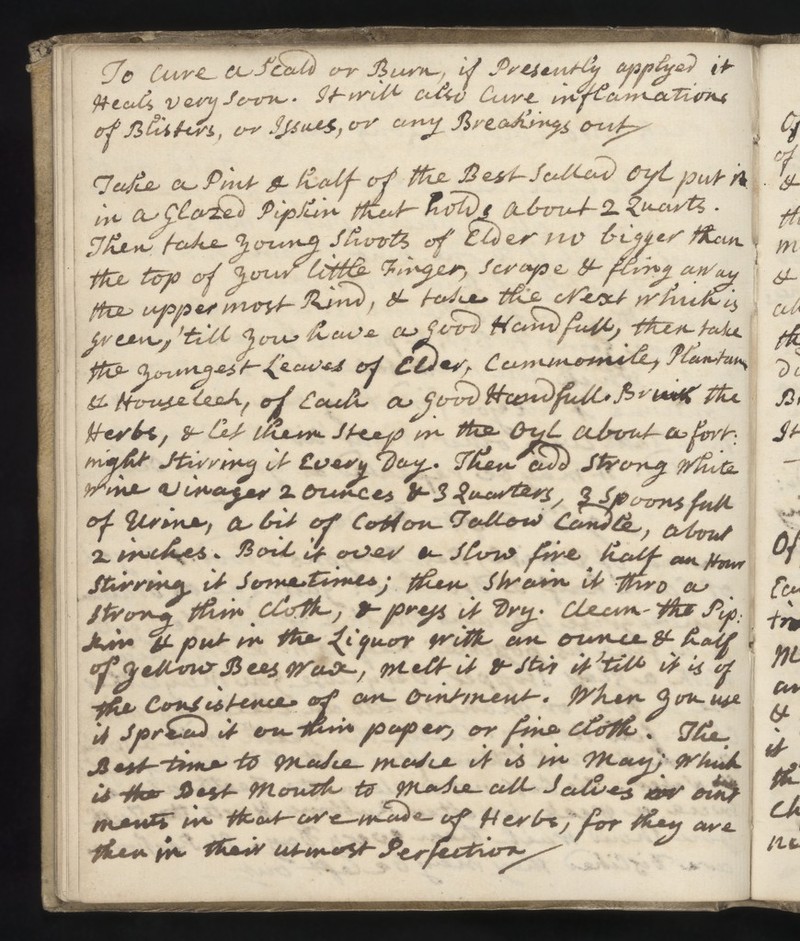 To Cure a Scald or Burn, if Presently applyed it
Heals very Soon. It will also Cure inflamations
of Blisters, or Issues, or any Breakings out
Take a Pint & half of the Best Sallad Oyl put it
in a Glazed Pipkin that holds about 2 Quarts.
Then take young Shoots of Elder no bigger than
the top of your little Finger, Scrape & fling away
the uppermost Rind, & take the Next which is
green, 'till you have a good Handfull, then take
the youngest Leaves of Elder, Cammomile, Plantan
& Houseleek, of Each a good Handfull. Bruise the
Herbs, & let them Steep in the Oyl about a fort:
night Stirring it Every Day. Then add Strong white
wine Vinager 2 ounces & 3 Quarters, 3 Spoons full
of Urine, a bit of Cotton Tallow Candle, about
2 inches. Boil it over a Slow fire half an Hour
Stirring it Sometimes; then Strain it thro a
Strong thin Cloth, & press it Dry. Clean the Pip:
kin & put in the Liquor with an ounce & half
of yellow Bees Wax, melt it & Stir it 'till it is of
the Consistence of an Ointment. When you use
it Spread it on thin paper, or fine Cloth. The
Best time to make make it is in May; which
is the Best Month to make all Salves or oint
ments in that are made of Herbs; for they are
then in their utmost Perfection
of
&
th
m
&
all
th
Br
It
Of
M
an
&
it
th
ch